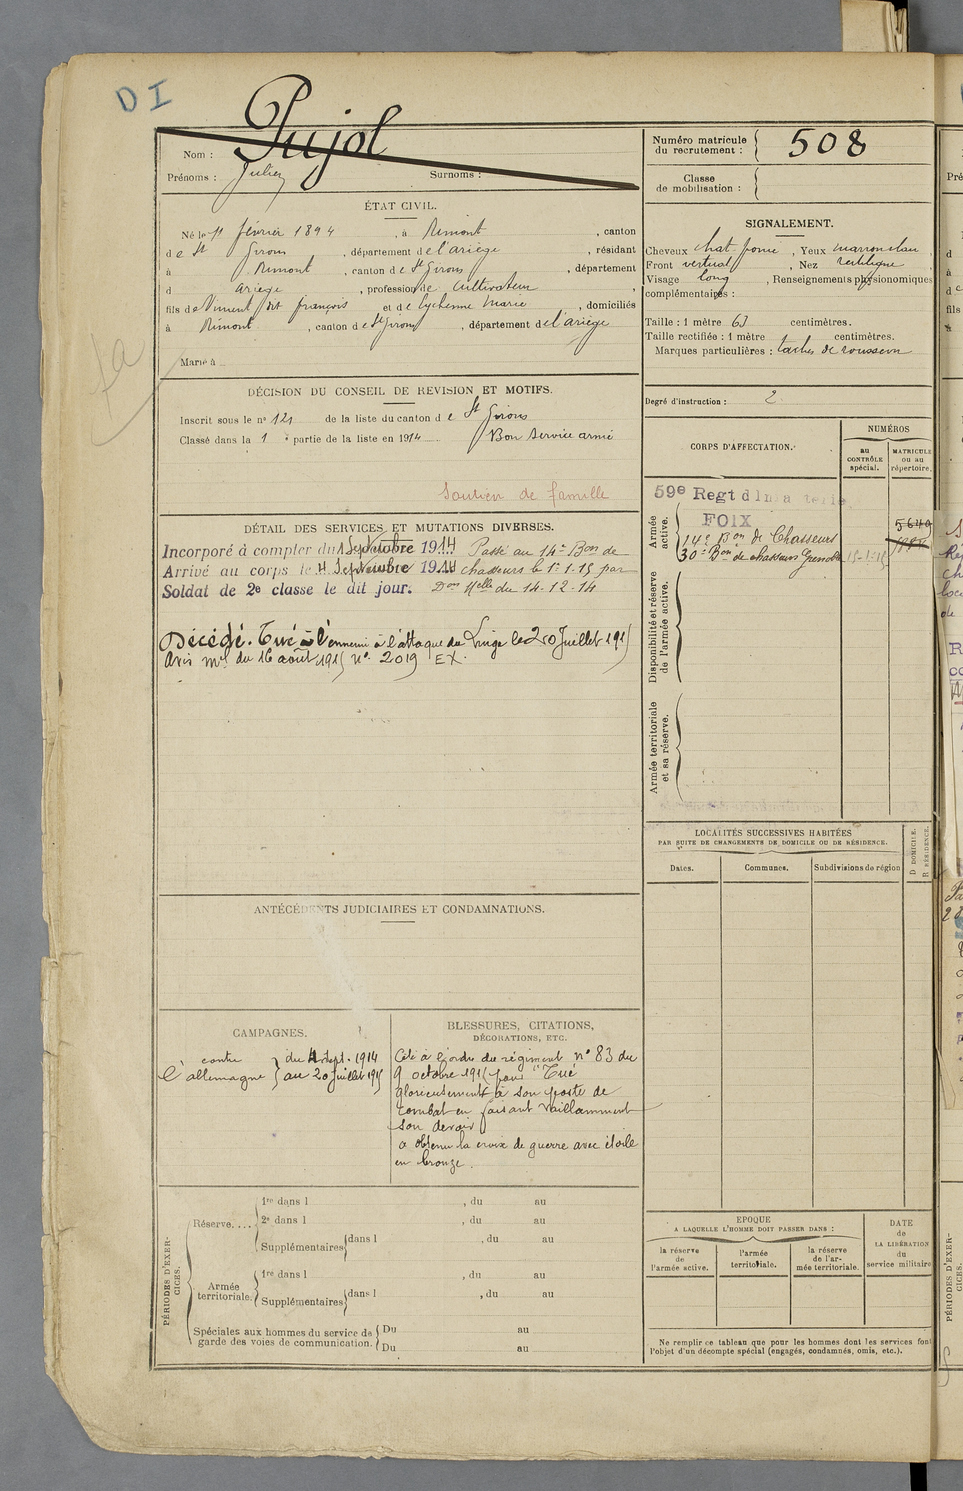 D I
Pujol
Nom :
Prénoms : Julien Surnoms :
Numéro matricule du recrutement : 508
Classe de mobilisation :
ÉTAT CIVIL.
Né le 11 février 1894, à Rimont, canton
de St Girons, département de l'ariège, résidant
à Rimont, canton de St Girons, département
d ariege, profession de cultivateur,
fils de Vincent dit françois et de Eychenne Marie, domiciliés
à Rimont, canton de St Girons, département de l'ariège
Marié à
SIGNALEMENT.
Cheveux chat. foncé, Yeux marron clair
Front vertical, Nez rectiligne
Visage long, Renseignements physionomiques
complémentaires :
Taille : 1 mètre 63 centimètres.
Taille rectifiée : 1 mètre centimètres.
Marques particulières : taches de rousseur
Degré d'instruction : 2
DÉCISION DU CONSEIL DE REVISION ET MOTIFS.
Inscrit sous le n° 121 de la liste du canton de St Girons
Classé dans la 1e partie de la liste en 1914 Bon Service armé
Soutien de famille
DÉTAIL DES SERVICES ET MUTATIONS DIVERSES.
Incorporé à compter du 1 Septembre 1914 Passé au 14e Bon de
Arrivé au corps le 4 Septembre 1914 chasseurs le 1er 1.15 par
Soldat de 2e classe le dit jour. Don Melle du 14-12-14
Décédé. Tué à l'ennemi à l'attaque du Linge le 20 Juillet 1915
Avis ml du 16 août 1915 n° 2019 EX.
CORPS D'AFFECTATION.
NUMÉROS
au CONTRÔLE spécial.
MATRICULE ou au répertoire.
Armée active.
59e Regt d'Infanterie
FOIX
14e Bon de Chasseurs
30e Bon de chasseurs Grenoble
Disponibilité et réserve de l'armée active.
Armée territoriale et sa réserve.
LOCALITÉS SUCCESSIVES HABITÉES
PAR SUITE DE CHANGEMENTS DE DOMICILE OU DE RÉSIDENCE.
Dates.
Communes.
Subdivisions de région
D DOMICILE.
R RÉSIDENCE.
ANTÉCÉDENTS JUDICIAIRES ET CONDAMNATIONS.
CAMPAGNES.
contre l'allemagne du 4 Sept. 1914
au 20 Juillet 1915
BLESSURES, CITATIONS,
DÉCORATIONS, ETC.
Cité à l'ordre du régiment n° 83 du
9 octobre 1915 pour "Tué
glorieusement à son poste de
combat en faisant vaillamment
son devoir
a obtenu la croix de guerre avec étoile
en bronze.
PÉRIODES D'EXERCICES.
Réserve....
1re dans l , du au
2e dans l , du au
Supplémentaires dans l , du au
Armée territoriale.
1re dans l , du au
Supplémentaires dans l , du au
Spéciales aux hommes du service de garde des voies de communication.
Du au
Du au
EPOQUE
A LAQUELLE L'HOMME DOIT PASSER DANS :
la réserve de l'armée active.
l'armée territoriale.
la réserve de l'armée territoriale.
DATE de LA LIBÉRATION du service militaire
Ne remplir ce tableau que pour les hommes dont les services font
l'objet d'un décompte spécial (engagés, condamnés, omis, etc.).